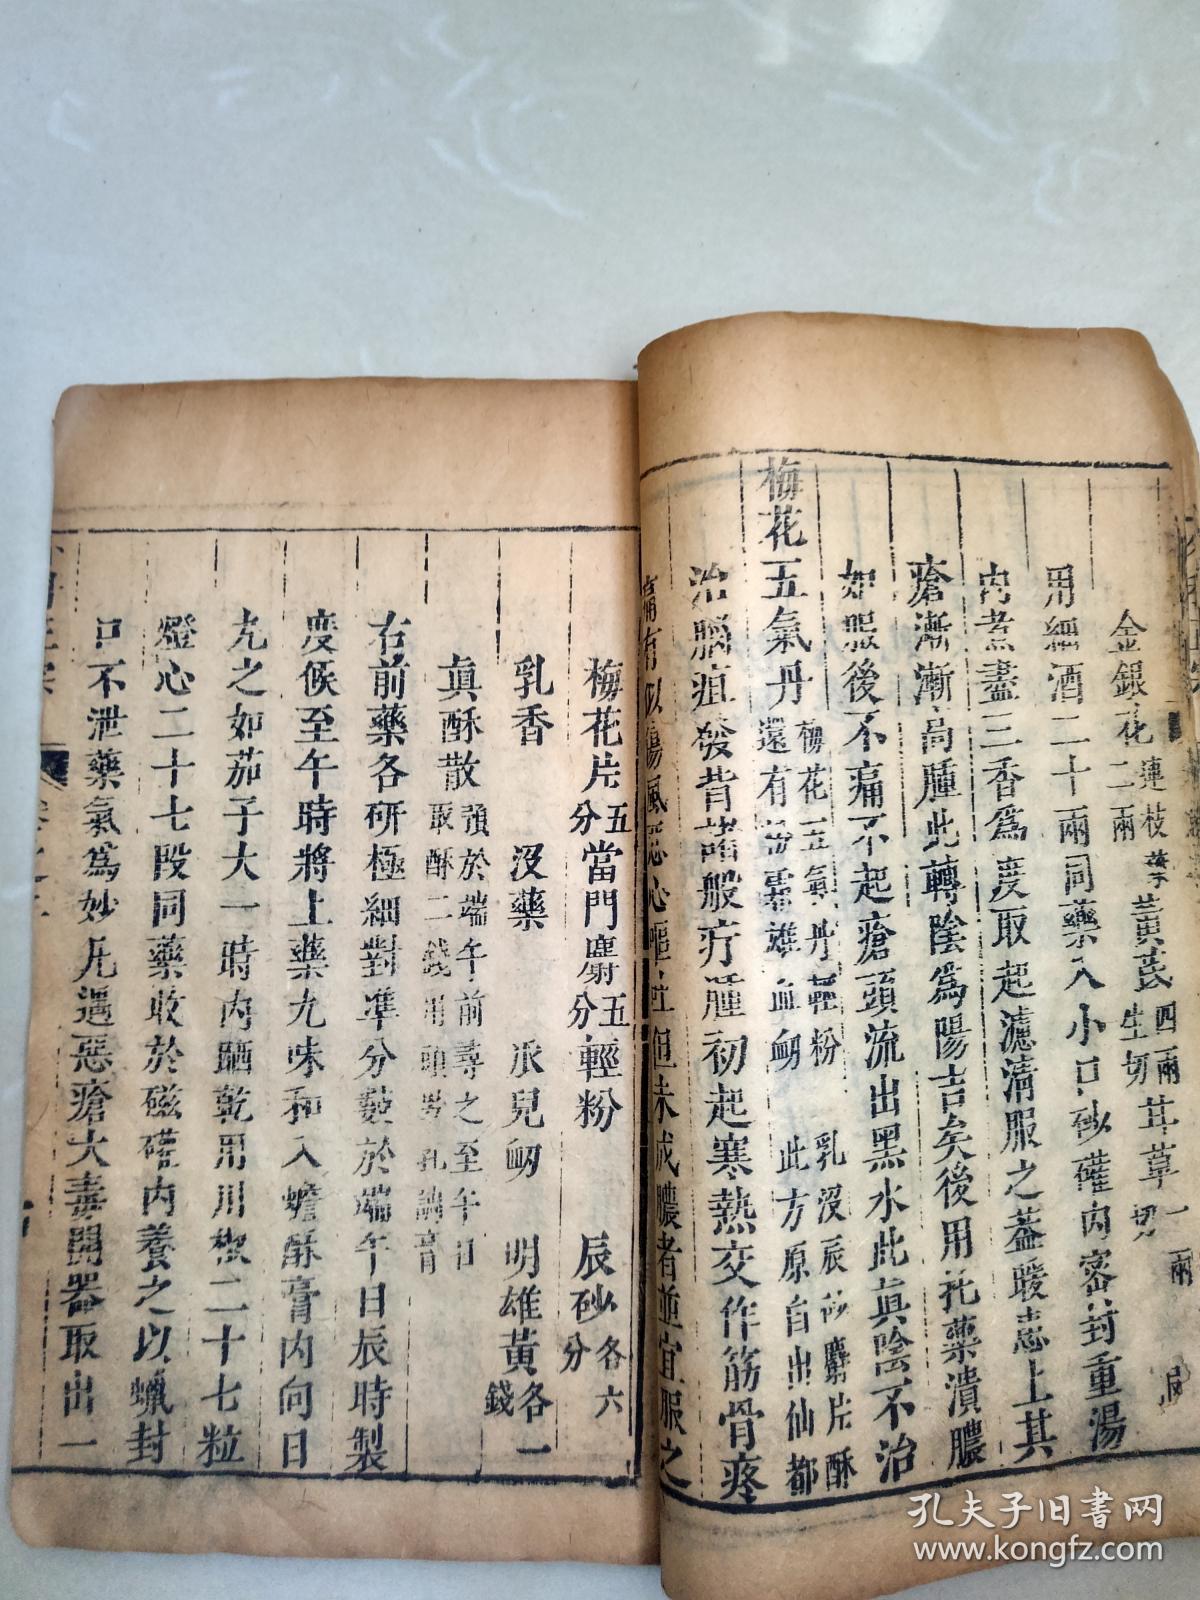 金銀花二兩 連枝葉 黃芪四兩生切 甘草一兩切
用細酒二十兩同藥入小口砂礶內密封重湯
內煮盡三香為度取起濾清服之蓋暖患上其
瘡漸漸高腫此轉陰為陽吉矣後用托藥潰膿
如服後不痛不起瘡頭流出黑水此真陰不治
梅花五氣丹 梅花五氣丹輕粉 乳沒辰砂麝片酥
還有雄血衂 此方原自出仙都
治腦疽發背諸般疔腫初起寒熱交作筋骨疼
痛有似傷風惡心嘔吐但未成膿者並宜服之
梅花片五分 當門麝五分 輕粉 辰砂各六分
乳香 沒藥 瓜兒衂 明雄黃各一錢
真酥散 預於端午前尋之至午日
取酥二錢用頭男乳調膏
右前藥各研極細對準分數於端午日辰時製
度候至午時將上藥九味和入蟾酥膏內向日
丸之如茄子大一時內晒乾用川椒二十七粒
燈心二十七段同藥收於磁礶內養之以蠟封
口不泄藥氣為妙凡遇惡瘡大毒開器取出一
孔夫子旧书网
www.kongfz.com